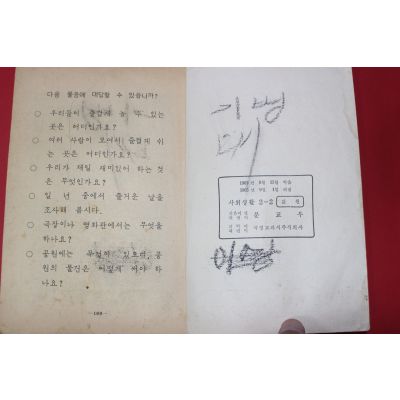 다음 물음에 대답할 수 있습니까?
○ 우리들이 즐겁게 놀 수 있는
곳은 어디인가요?
○ 여러 사람이 모여서 즐겁게 쉬
는 곳은 어디인가요?
○ 우리가 제일 재미있어 하는 것
은 무엇인가요?
○ 일 년 중에서 즐거운 날을
조사해 봅시다.
○ 극장이나 영화관에서는 무엇을
하나요?
○ 공원에는 무엇이 있으며, 공
원의 물건은 어떻게 써야 하
나요?
기병
대
사회생활 2-2
문교부
국정교과서주식회사